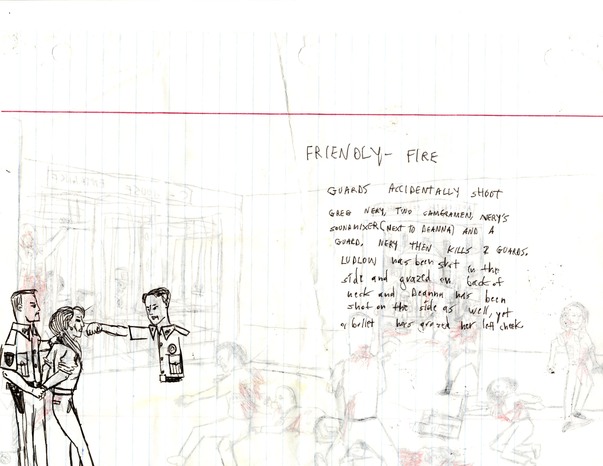 FRIENDLY- FIRE
GUARDS ACCIDENTALLY SHOOT
GREG NERY, TWO CAMERAMEN, NERY'S
SOUNDMIXER (NEXT TO DEANNA) AND A
GUARD, NERY THEN KILLS 2 GUARDS.
LUDLOW has been shot in the
side and grazed on back of
neck and Deanna has been
shot on the side as well, yet
a bullet has grazed her left cheek